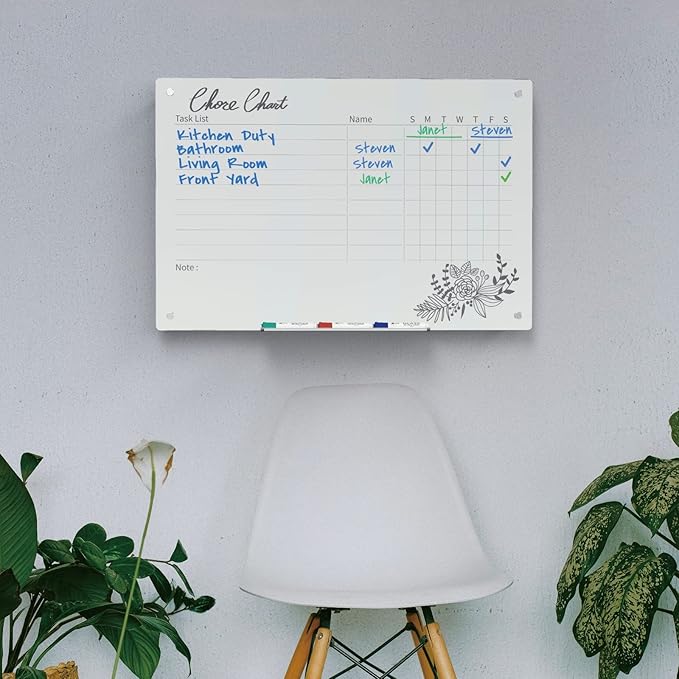 Chore Chart
Task List Name S M T W T F S
Kitchen Duty Janet Steven
Bathroom Steven ✓ ✓
Living Room Steven ✓
Front Yard Janet ✓
Note :